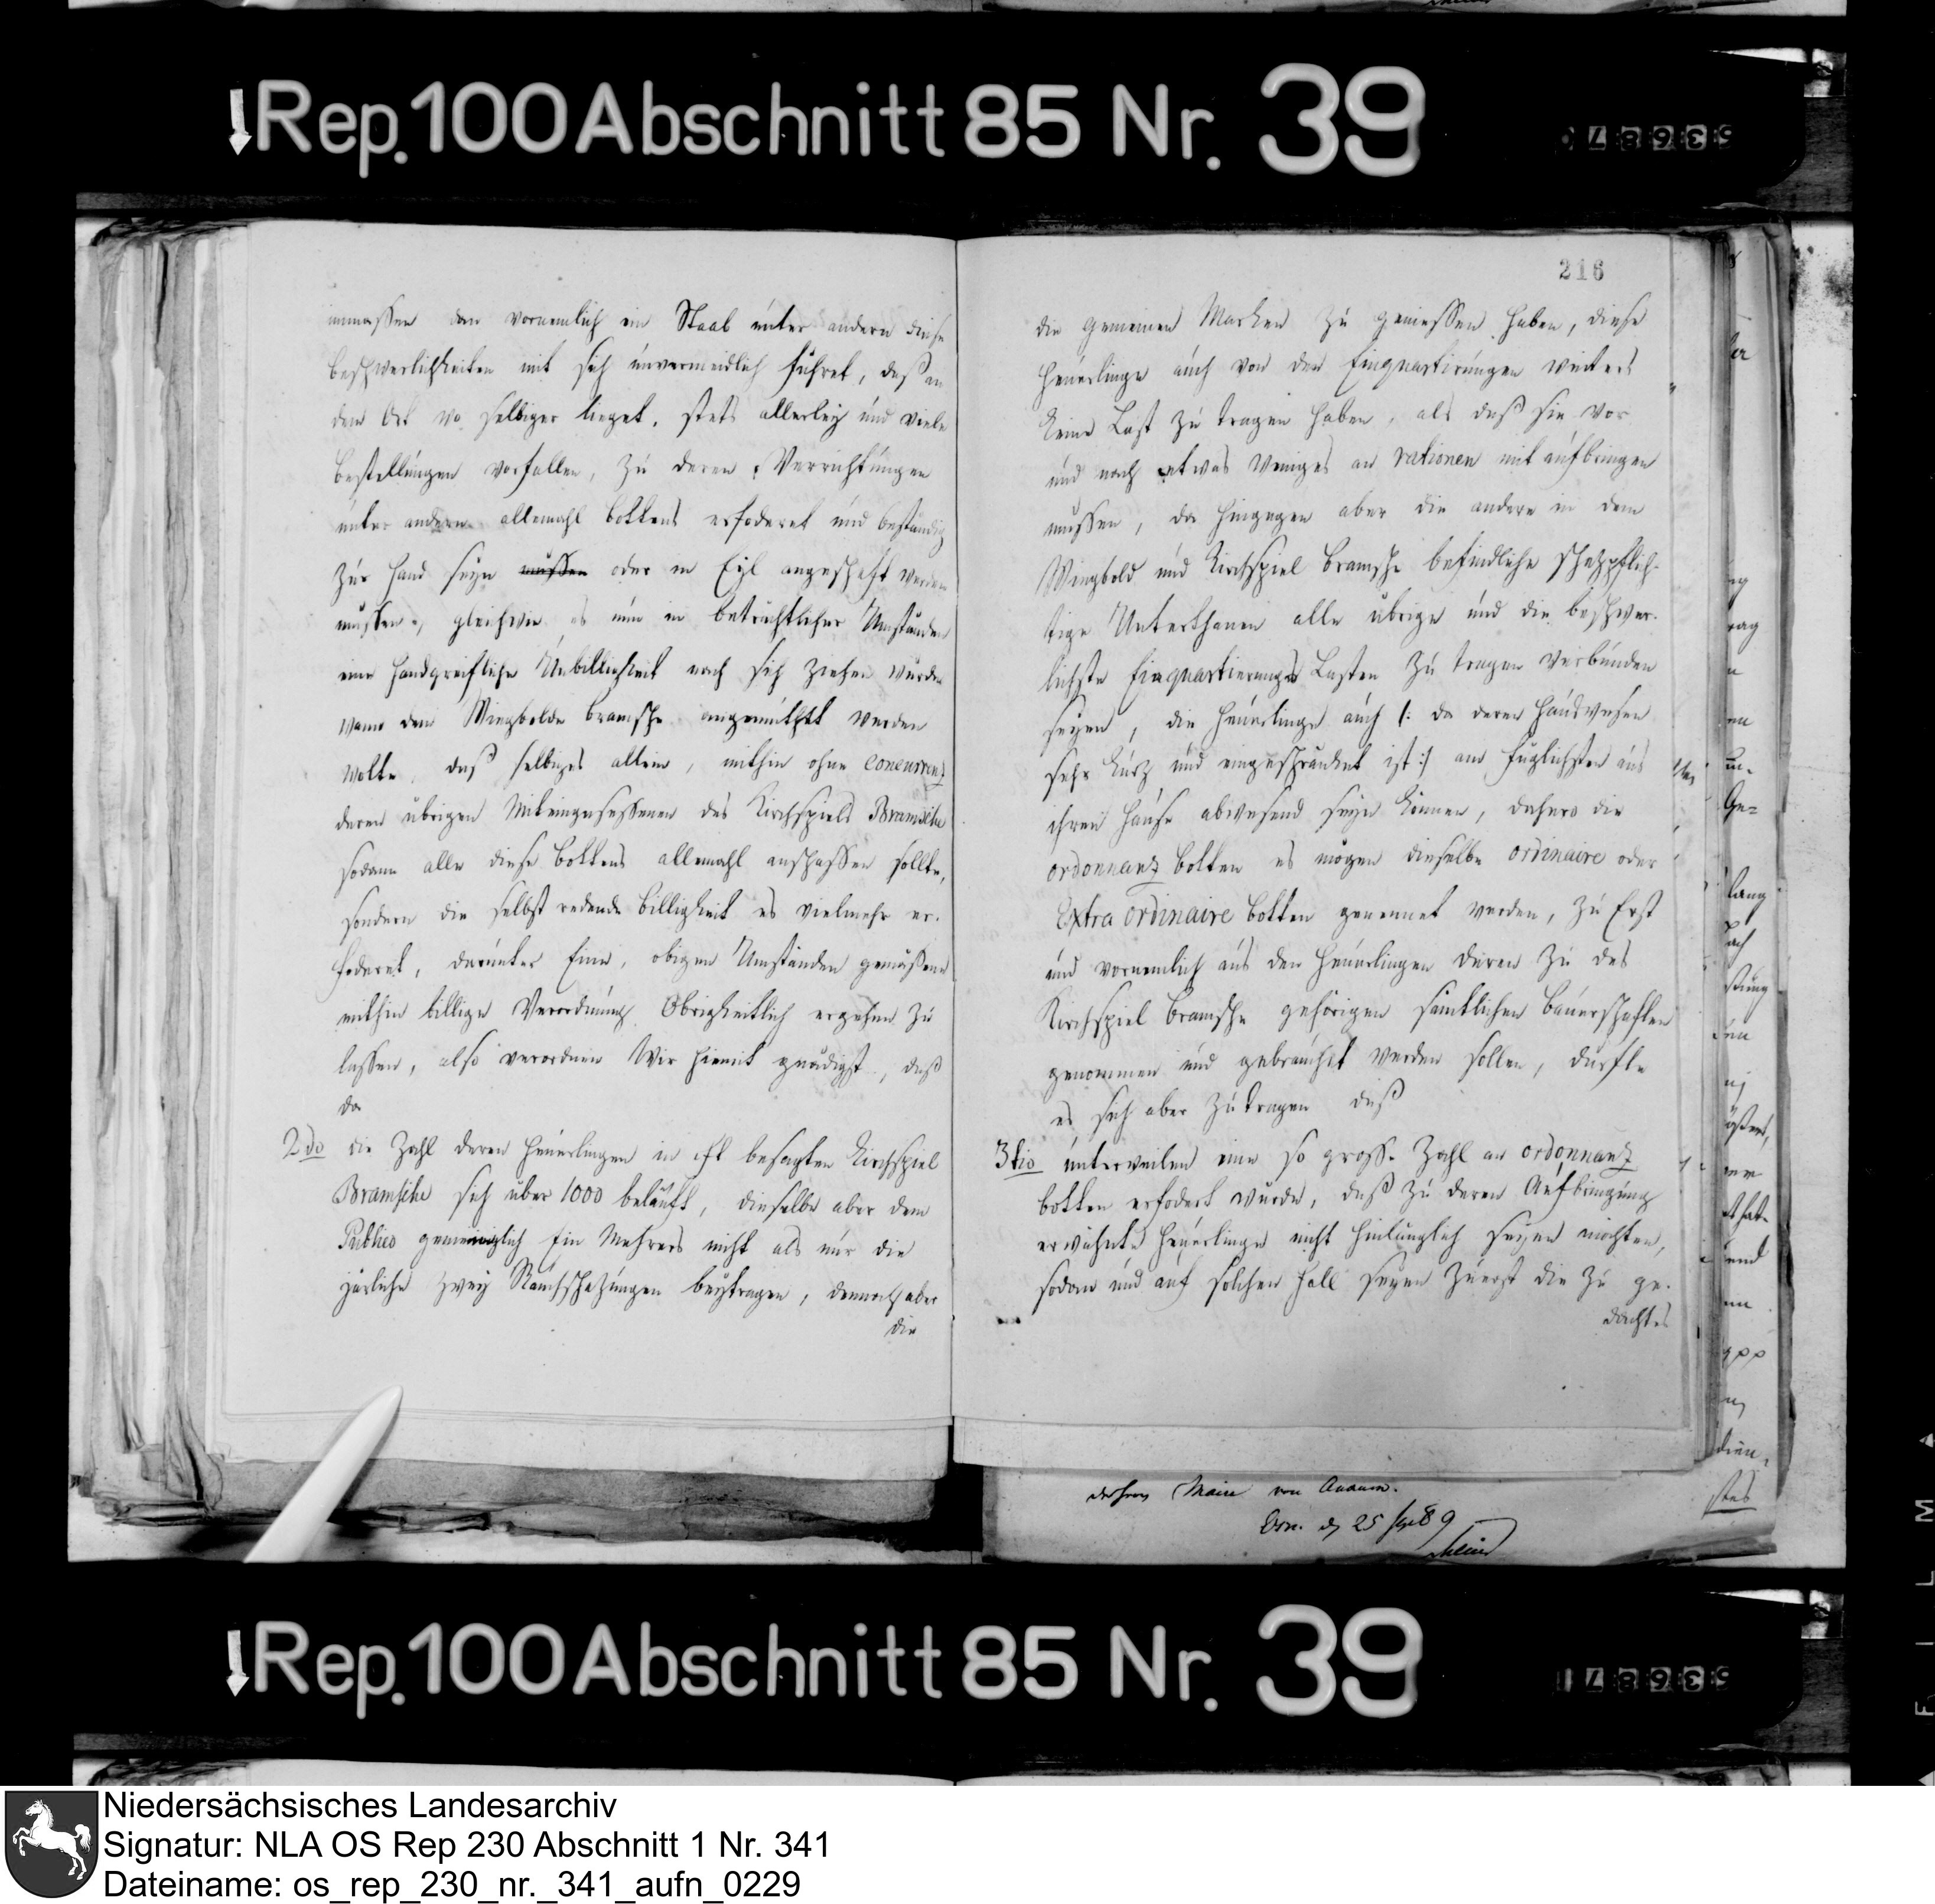 Rep. 100 Abschnitt 85 Nr. 39
immassen dan vornemlich ein Staab unter andern diese
beschwerlichkeiten mit sich unvermeidlich führet, daß an
dem Ort wo selbiger lieget, stets allerley und viele
bestellungen vorfallen, zu deren Verrichtungen
unter andern allemahl bottens erfoderet und beständig
zur Hand seyn müssen oder in Eyl angeschaft werden
müssen, gleichwie es nun in beträchtlicher Umständen
eine handgreifliche Unbilligkeit nach sich ziehen würde
wann dem Wiegbolde bramsche angemuthet werden
wolte, daß selbiges allein, mithin ohne Concurrenz
deren übrigen Miteingesessenen des Kirchspiels Bramsche
sodann alle diese bottens allemahl anschaffen sollte,
sondern die selbst redende billigkeit es vielmehr er-
foderet, darunter Eine, obigen Umständen gemäßene
mithin billige Verordnung Obrigkeitlich ergehen zu
lassen, also verordnen Wir hiemit gnädigst, daß
da
2do die Zahl deren Heuerlingen in oft besagten Kirchspiel
Bramsche sich über 1000 beläuft, dieselbe aber dem
Publico gemeiniglich Ein Mehrers nicht als nur die
järliche zwey Rauchschatzungen beytragen, dennoch aber
die
216
die gemeinen Marken zu geniessen haben, diese
Heuerlinge auch von den Einquartirungen weiters
keine Last zu tragen haben, als daß sie vor
und nach etwas weniges an rationen mit aufbringen
müssen, da hingegen aber die andere in dem
Wiegbold und Kirchspiel bramsche befindliche schazpflich-
tige Unterthanen alle übrige und die beschwer-
lichste Einquartierungs Lasten zu tragen verbunden
seyen, die Heuerlinge auch /: da deren Hauswesen
sehr kurz und eingeschränket ist :/ am füglichsten aus
ihren Hause abwesend seyn können, dahero die
ordonnanz botten es mögen dieselbe ordinaire oder
Extra ordinaire botten genennet werden, zu Erst
und vornemlich aus den Heuerlingen deren zu des
Kirchspiel bramsche gehörigen sämtlichen bauerschaften
genommen und gebrauchet werden sollen, dürfte
es sich aber zutragen daß
3tio unterweilen eine so grosse Zahl an ordonnanz
botten erfodert würde, daß zu deren Aufbringung
erwähnte Heuerlinge nicht hinlänglich seyen möchten,
sodan und auf solchen Fall seyen zuerst die zu ge-
dachtes
Maire von
25 Sept 89
Rep. 100 Abschnitt 85 Nr. 39
Niedersächsisches Landesarchiv
Signatur: NLA OS Rep 230 Abschnitt 1 Nr. 341
Dateiname: os_rep_230_nr._341_aufn_0229